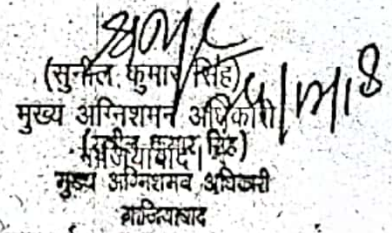 (सुनील कुमार सिंह)
मुख्य अग्निशमन अधिकारी
गाजियाबाद।
(सुनील कुमार सिंह)
मुख्य अग्निशमन अधिकारी
गाजियाबाद